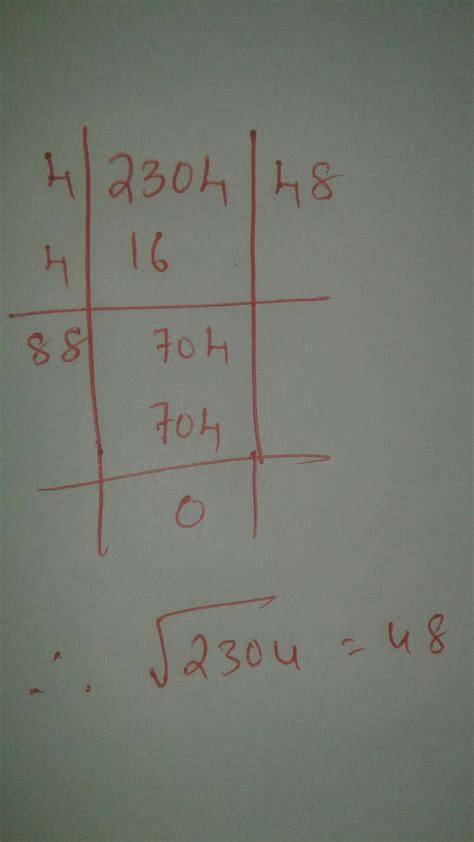 4 2304 48
4 16
88 704
704
0
∴ √2304 = 48